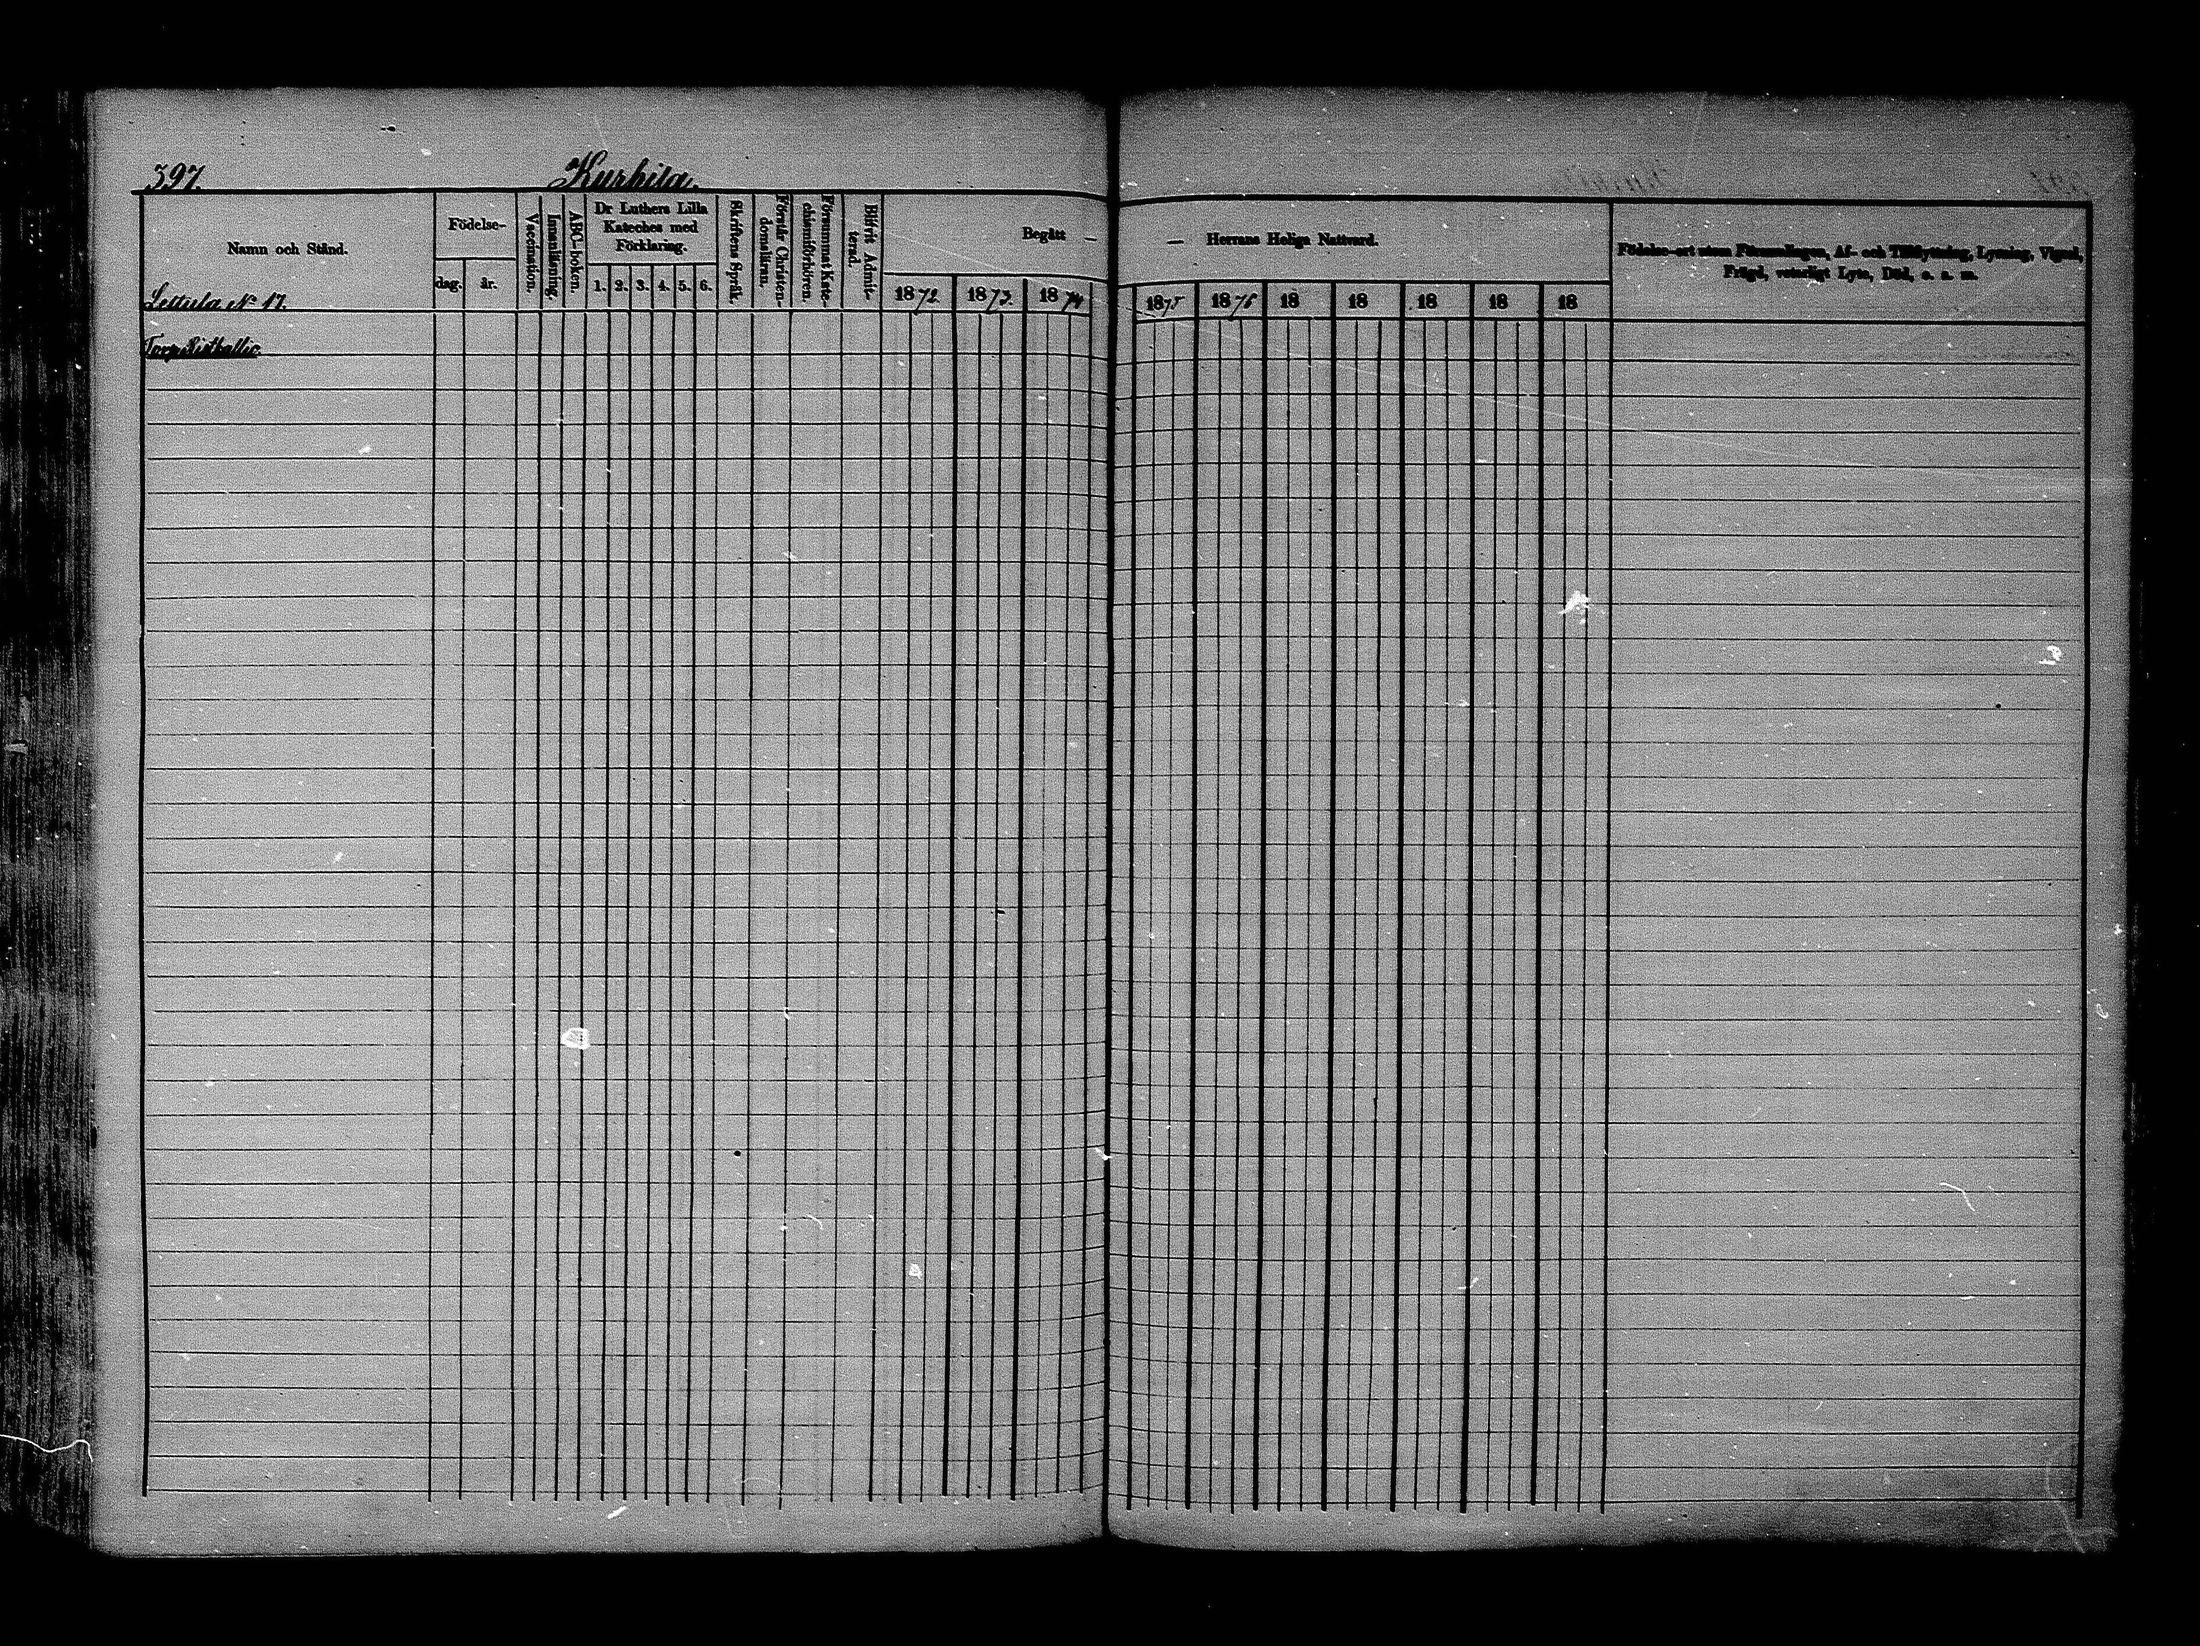 397.
Kurhila.
Namn och Stånd.
Födelse-
dag.
år.
Vaccination.
Innanläsning.
ABC-boken.
Dr Luthers Lilla
Kateches med
Förklaring.
1. 2. 3. 4. 5. 6.
Skriftens Språk.
Förstår Christen-
domsläran.
Försummat Kate-
chismiförhören.
Blifvit Admit-
terad.
Begått —
1872. 1873. 1874
— Herrans Heliga Nattvard.
1875 1876 18 18 18 18 18
Födelse-ort utom Församlingen, Af- och Tillflyttning, Lysning, Vigsel,
Frägd, veterligt Lyte, Död, o. s. m.
Lettula No 17.
Torp